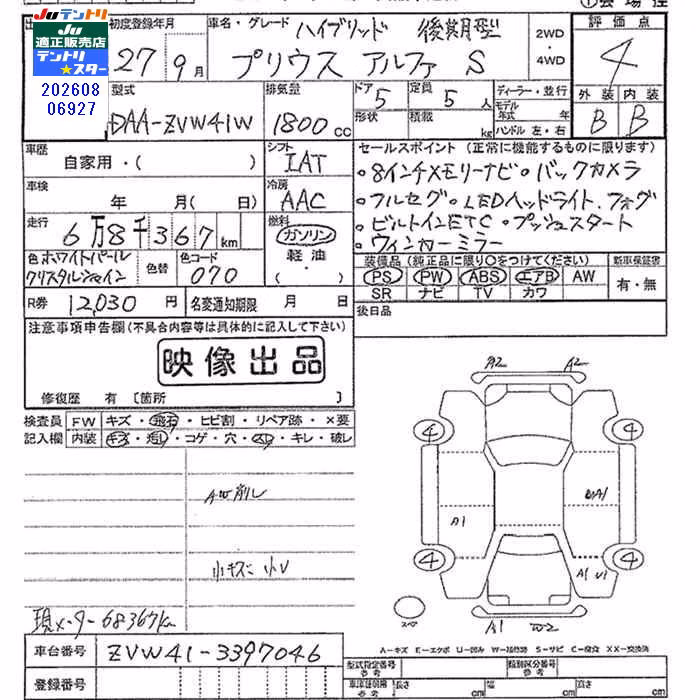 JUテントリ
JU
適正販売店
テントリ
★スター
202608
06927
初度登録年月
27 9月
車名・グレード
ハイブリッド 後期型
プリウス アルファ S
2WD
・
4WD
評価点
4
外装 内装
B B
型式
DAA-ZVW41W
排気量
1800cc
ドア 5
形状
定員 5人
積載 kg
ディーラー・並行
モデル年式 年
ハンドル 左・右
車歴
自家用・( )
シフト
IAT
車検
年 月( 日)
冷房
AAC
走行
6万8千367km
燃料
ガソリン
軽油
( )
色 ホワイトパール
クリスタルシャイン
色替
色コード
070
R券 12,030円
名変通知期限 月 日
セールスポイント(正常に機能するものに限ります)
・8インチメモリーナビ・バックカメラ
・フルセグ・LEDヘッドライト.フォグ
・ビルトインETC・プッシュスタート
・ウィンカーミラー
装備品(純正品に限り○をつけてください)
PS PW ABS エアB AW
SR ナビ TV カワ
新車保証書
有・無
後日品
注意事項申告欄(不具合内容等は具体的に記入して下さい)
映像出品
修復歴 有〔箇所 〕
検査員
記入欄
FW キズ・飛石・ヒビ割・リペア跡・×要
内装 キズ・汚レ・コゲ・穴・スレ・キレ・破レ
AW削レ
小キズ 小U
現メーター68367km
A2 A2
4 4
A1
4 4
A1 U1
スペア
A1 W2
A-キズ E-エクボ U-凹み W-補修跡 S-サビ C-腐食 XX-交換済
車台番号 ZVW41-3397046
登録番号
型式指定番号
参考
類別区分番号
参考
長さ cm
幅 cm
高さ cm